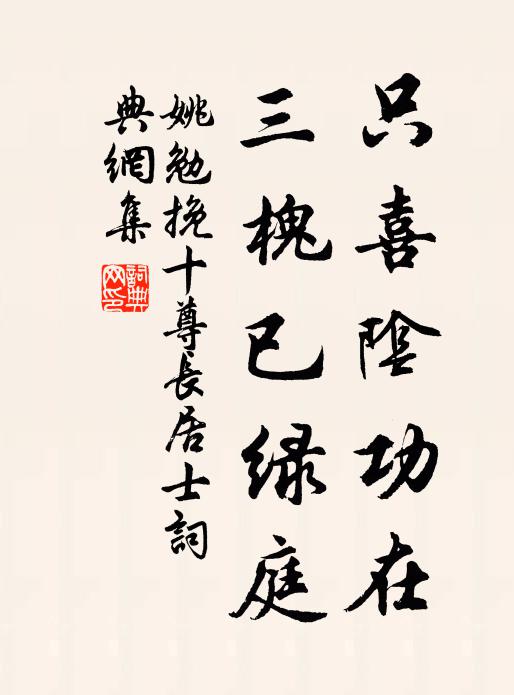 只喜陰功在
三槐已緑庭
姚勉挽十尊長居士詞
典網集
詞典网印